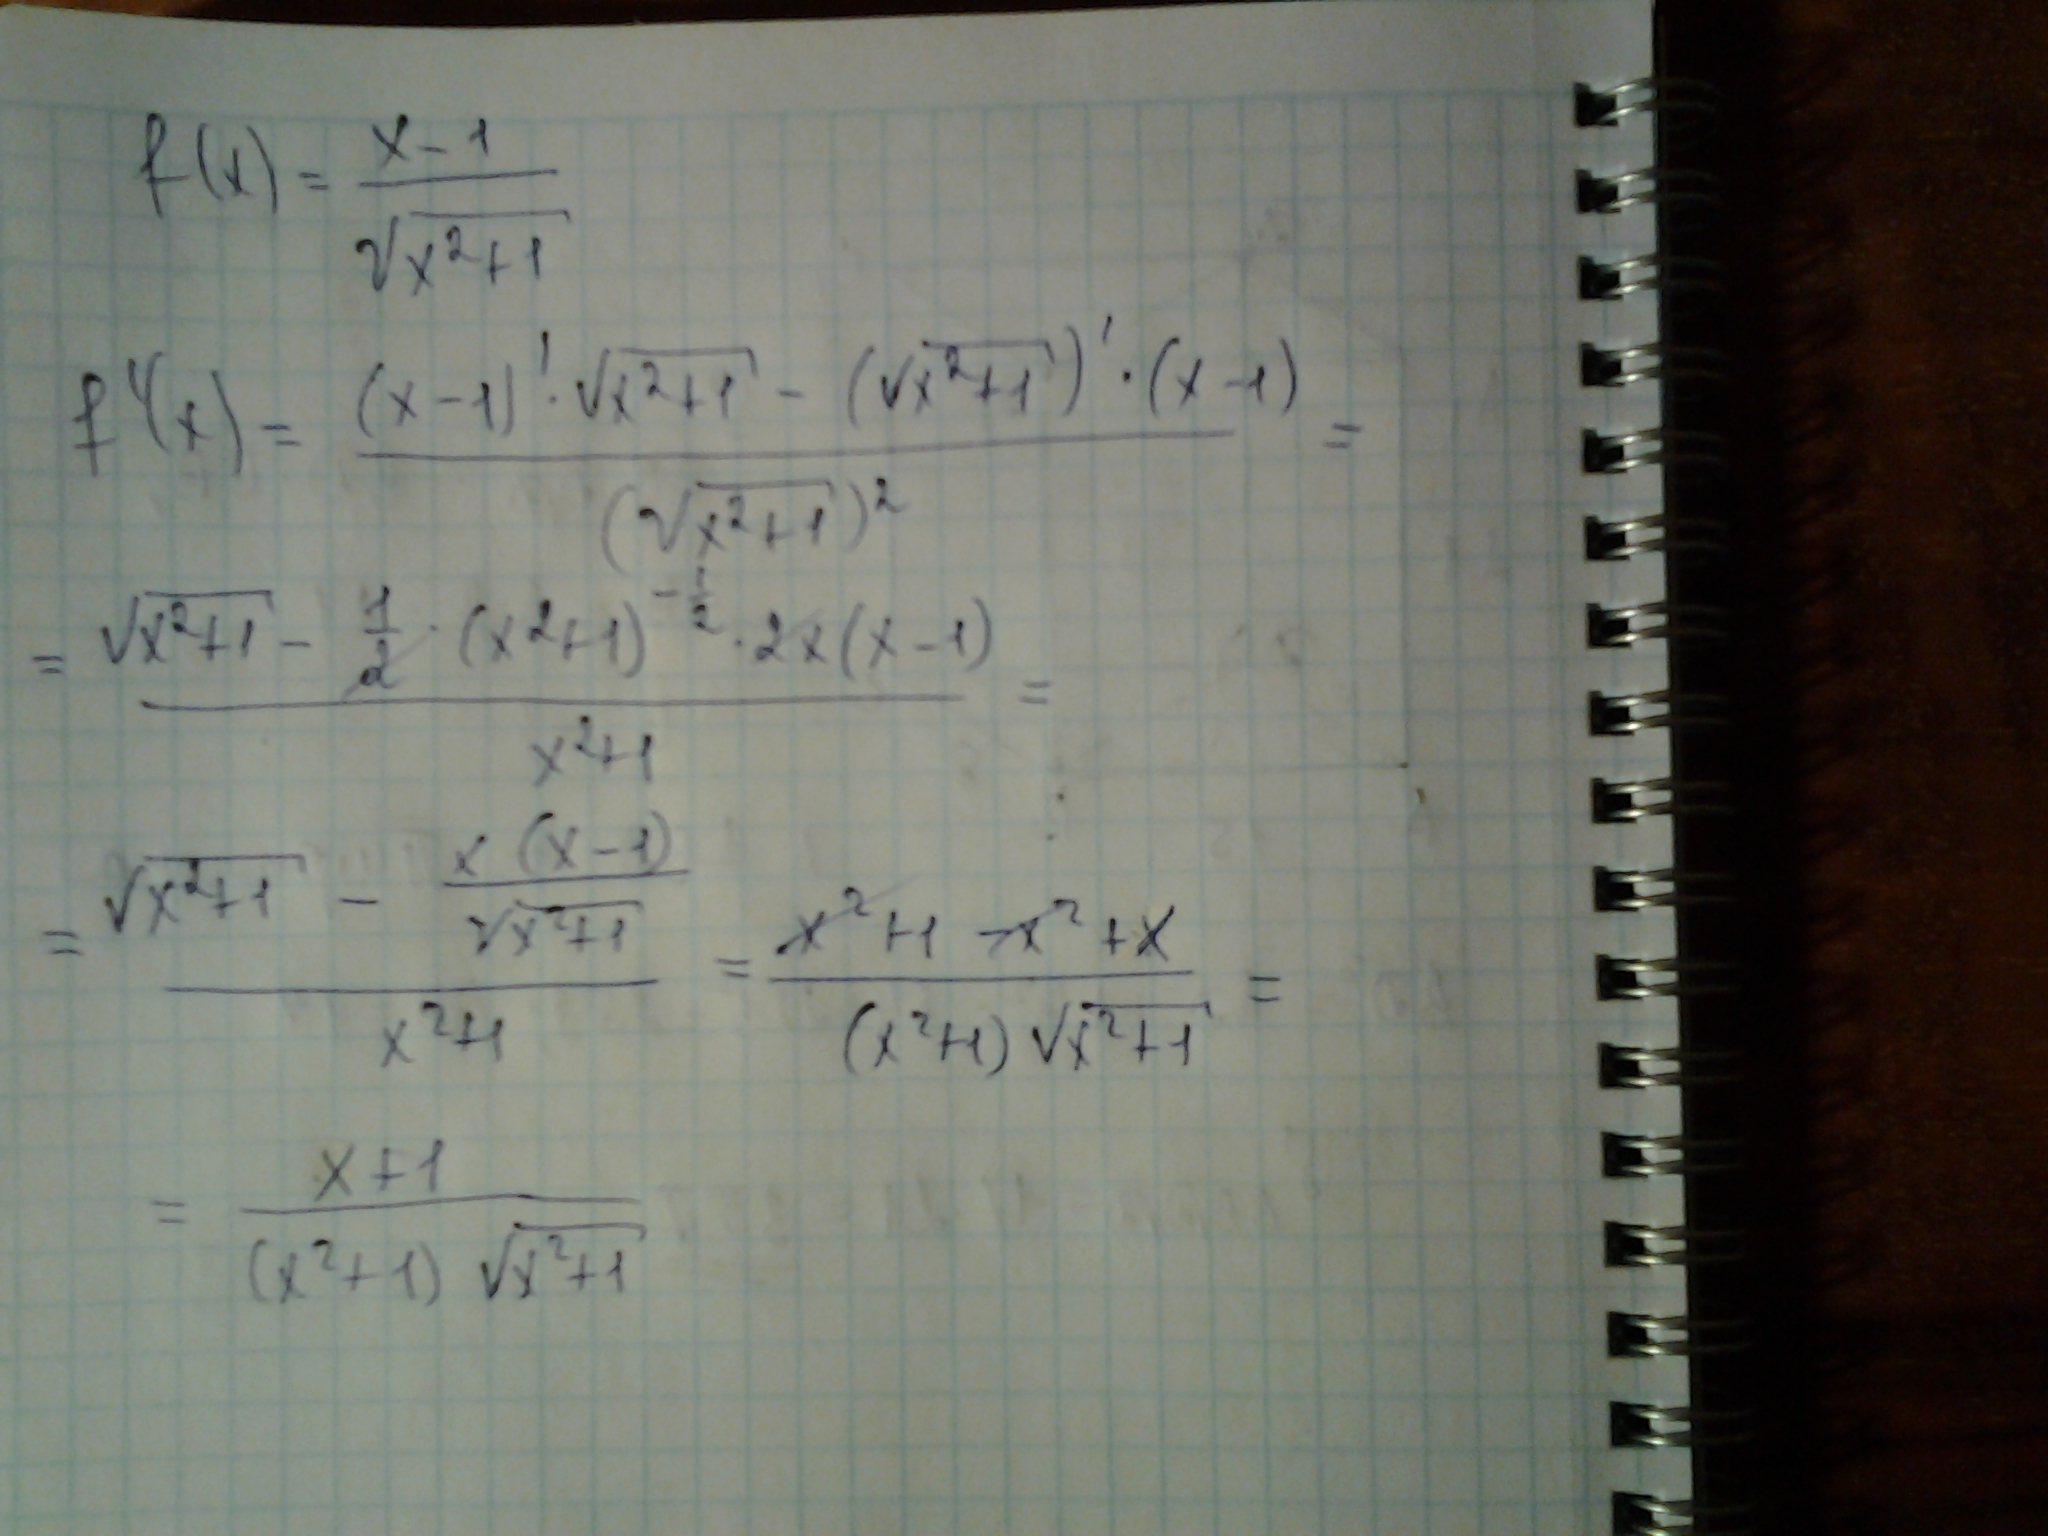 f(x) = (x-1)/√(x²+1)
f'(x) = ((x-1)'·√(x²+1) - (√(x²+1))'·(x-1))/(√(x²+1))² =
= (√(x²+1) - 1/2·(x²+1)^(-1/2)·2x(x-1))/(x²+1) =
= (√(x²+1) - x(x-1)/√(x²+1))/(x²+1) = (x²+1-x²+x)/((x²+1)√(x²+1)) =
= (x+1)/((x²+1)√(x²+1))